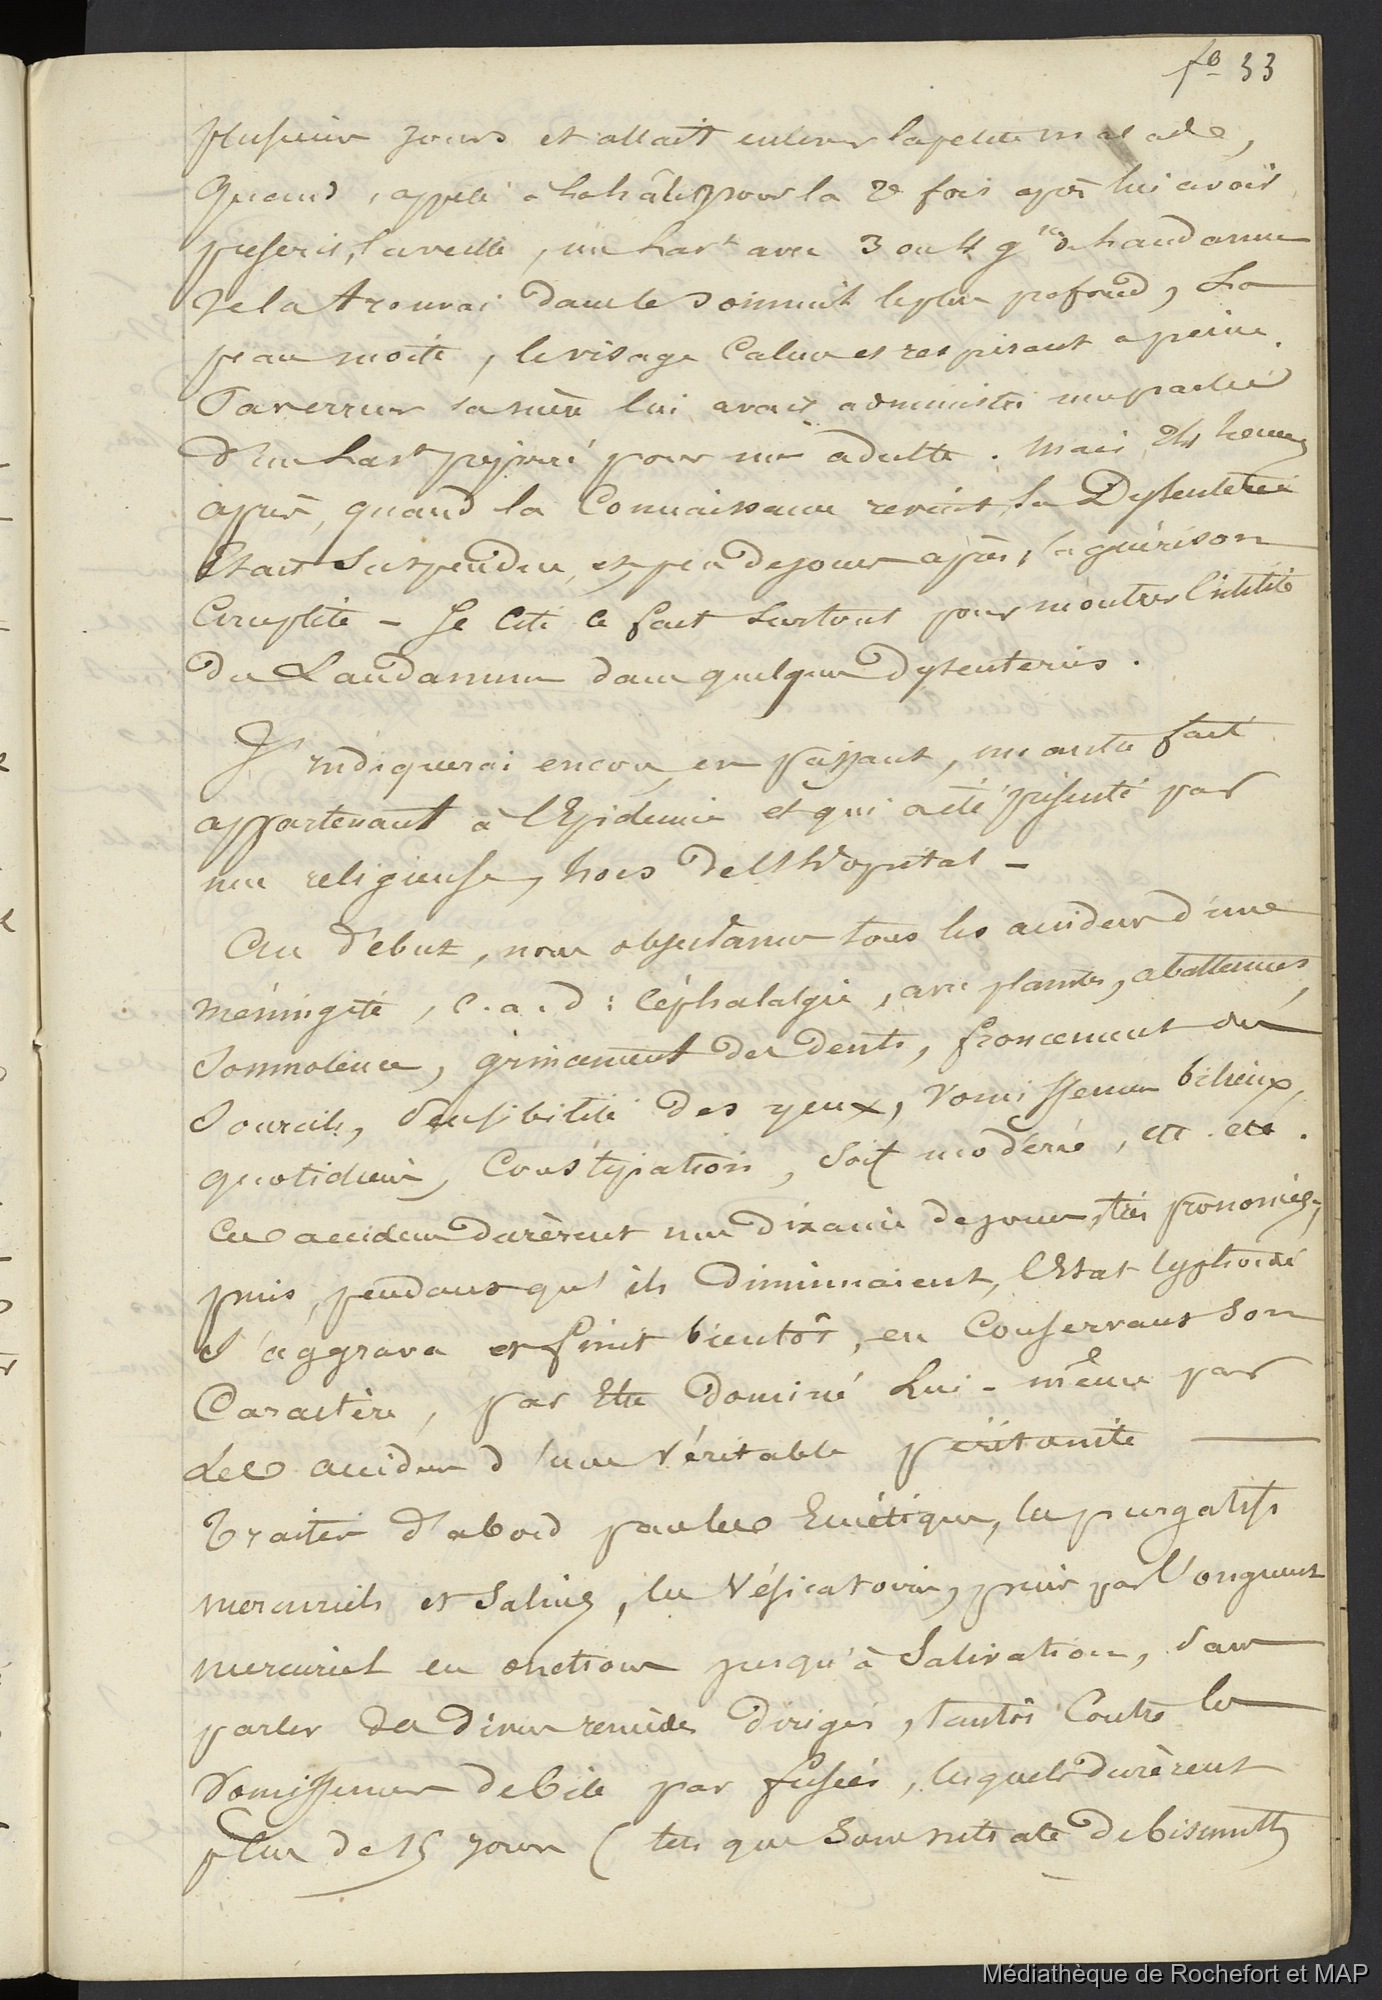 fo 33
plusieurs jours et allait enlever la petite malade,
quand, appelé à la hâte pour la 2e fois après lui avoir
prescrit, la veille, un lavt avec 3 ou 4 gttes de laudanum
Je la trouvai dans le sommeil le plus profond, La
peau moite, le visage calme et respirant à peine.
Par erreur sa mère lui avait administré une partie
d'un lavt préparé pour un adulte. Mais, 24 heures
après, quand la Connaissance revint, la Dysenterie
Etait Suspendue, et, peu de jours après, la guérison
Complète – Je Cite ce fait surtout pour montrer l'utilité
du Laudanum dans quelques Dysenteries.
J'indiquerai encore, en passant, un autre fait
appartenant à l'Epidémie et qui a été présenté par
une religieuse, hors de l'hôpital –
Au début, nous observâmes tous les accidens d'une
méningite, c.a.d : Céphalalgie, avec plaintes, abattement,
Somnolence, grincement des dents, froncement des
Sourcils, Sensibilité des yeux, Vomissemens bilieux,
quotidiens, Constipation, Soif modérée, etc etc.
Ces accidens durèrent une dixaine de jours, très prononcés,
puis, pendant qu'ils diminuaient, l'Etat typhoïde
S'aggrava et finit bientôt, en Conservant Son
Caractère, par Etre Dominé Lui-même par
Les accidens d'une Véritable péritonite —
Traitée d'abord par les Emétiques, les purgatifs
mercuriels et Salins, les Vésicatoires, puis par l'onguent
mercuriel en onctions jusqu'à Salivation, Sans
parler des divers remèdes dirigés, tantôt Contre les
Vomissemens de bile par fusées, lesquels durèrent
plus de 15 jours (tels que Sous nitrate de bismuth,
Médiathèque de Rochefort et MAP